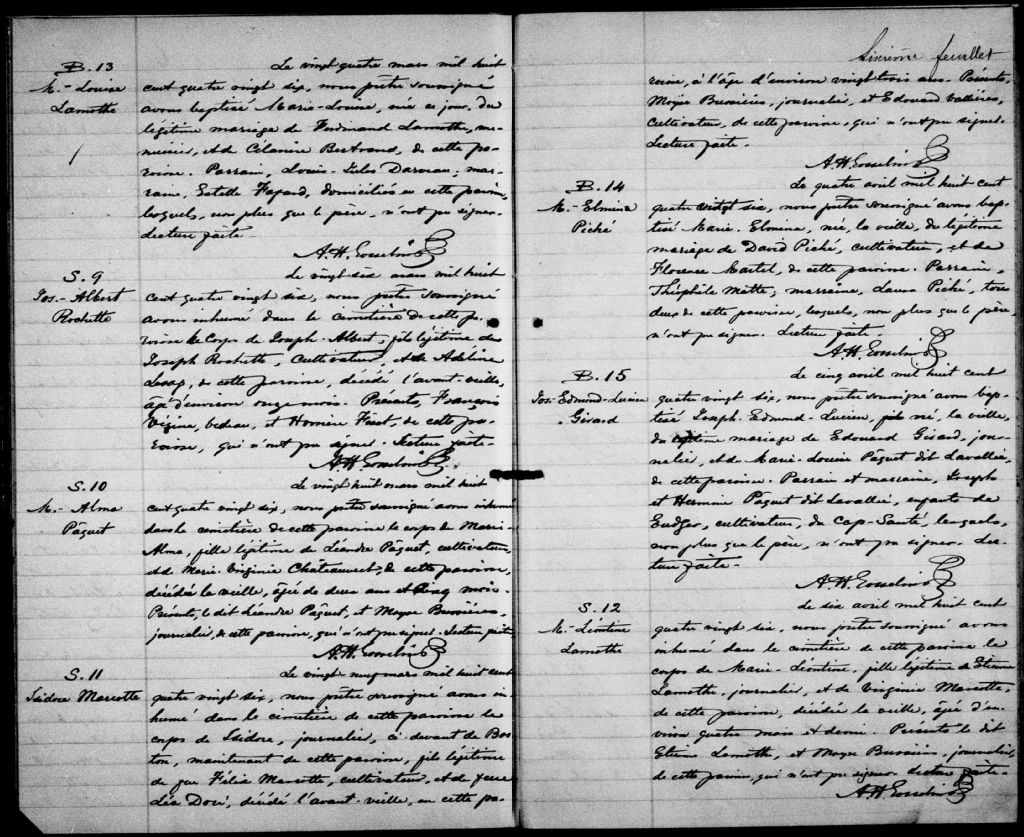 B. 13
M.- Louise
Lamothe
Le vingt quatre mars mil huit
cent quatre vingt six, nous prêtre soussigné
avons baptisé Marie-Louise, née ce jour, du
légitime mariage de Ferdinand Lamothe, me-
nuisier, et d Célanire Bertrand, de cette pa-
roisse. Parrain, Louis-Jules Darveau; mar-
raine, Estelle Fayard, domiciliés en cette paroisse,
lesquels, non plus que le père, n'ont pu signer.
Lecture faite.
A. H. Gosselin
S. 9
Jos.- Albert
Rochette
Le vingt six mars mil huit
cent quatre vingt six, nous prêtre soussigné
avons inhumé dans le cimetière de cette pa-
roisse le corps de Joseph-Albert, fils légitime de
Joseph Rochette, cultivateur, et de Adeline
de cette paroisse, décédé l'avant-veille,
âgé d'environ onze mois. Présents, François
Vézina, bedeau, et Homère de cette pa-
roisse, qui n'ont pu signer. Lecture faite.
A. H. Gosselin
S. 10
M.- Alma
Pâquet
Le vingt huit mars mil huit
cent quatre vingt six, nous prêtre soussigné avons inhumé
dans le cimetière de cette paroisse le corps de Marie-
Alma, fille légitime de Léandre Pâquet, cultivateur,
et d Marie-Virginie Chateauvert, de cette paroisse,
décédée la veille, âgée de deux ans et cinq mois.
Présents, le dit Léandre Pâquet, et Moyse Bussières,
journalier, de cette paroisse, qui n'ont pu signer. Lecture faite
A. H. Gosselin
S. 11
Isidore Marcotte
Le vingt neuf mars mil huit cent
quatre vingt six, nous prêtre soussigné avons in-
humé dans le cimetière de cette paroisse le
corps de Isidore, journalier, ci devant de Bos-
ton, maintenant de cette paroisse, fils légitime
de feu Félix Marcotte, cultivateur, et de feue
Léa Doré, décédé l'avant-veille, en cette pa-
Sixième feuillet
roisse, à l'âge d'environ vingt trois ans. Présents,
Moyse Bussières, journalier, et Edouard Vallières,
cultivateur, de cette paroisse, qui n'ont pu signer.
Lecture faite.
A. H. Gosselin
B. 14
M.- Elmina
Piché
Le quatre avril mil huit cent
quatre vingt six, nous prêtre soussigné avons bap-
tisé Marie-Elmina, née, la veille, du légitime
mariage de David Piché, cultivateur, et de
Florence Martel, de cette paroisse. Parrain,
Théophile Matte; marraine, Laura Piché, tous
deux de cette paroisse, lesquels, non plus que le père,
n'ont pu signer. Lecture faite.
A. H. Gosselin
B. 15
Jos.-Edmond-Lucien
Girard
Le cinq avril mil huit cent
quatre vingt six, nous prêtre soussigné avons bap-
tisé Joseph-Edmond-Lucien, né, la veille,
du légitime mariage de Edouard Girard, jour-
nalier, et d Marie-Louise Pâquet dit Lavallée,
de cette paroisse. Parrain et marraine, Joseph
et Hermine Pâquet dit Lavallée, enfants de
Eudger, cultivateur, du Cap-Santé, lesquels,
non plus que le père, n'ont pu signer. Lec-
ture faite.
A. H. Gosselin
S. 12
M.- Léontine
Lamothe
Le six avril mil huit cent
quatre vingt six, nous prêtre soussigné avons
inhumé dans le cimetière de cette paroisse le
corps de Marie-Léontine, fille légitime de Etienne
Lamothe, journalier, et de Virginie Marcotte,
de cette paroisse, décédée la veille, âgée d'en-
viron quatre mois et demi. Présents le dit
Etienne Lamothe, et Moyse Bussières, journalier,
de cette paroisse, qui n'ont pu signer. Lecture faite.
A. H. Gosselin